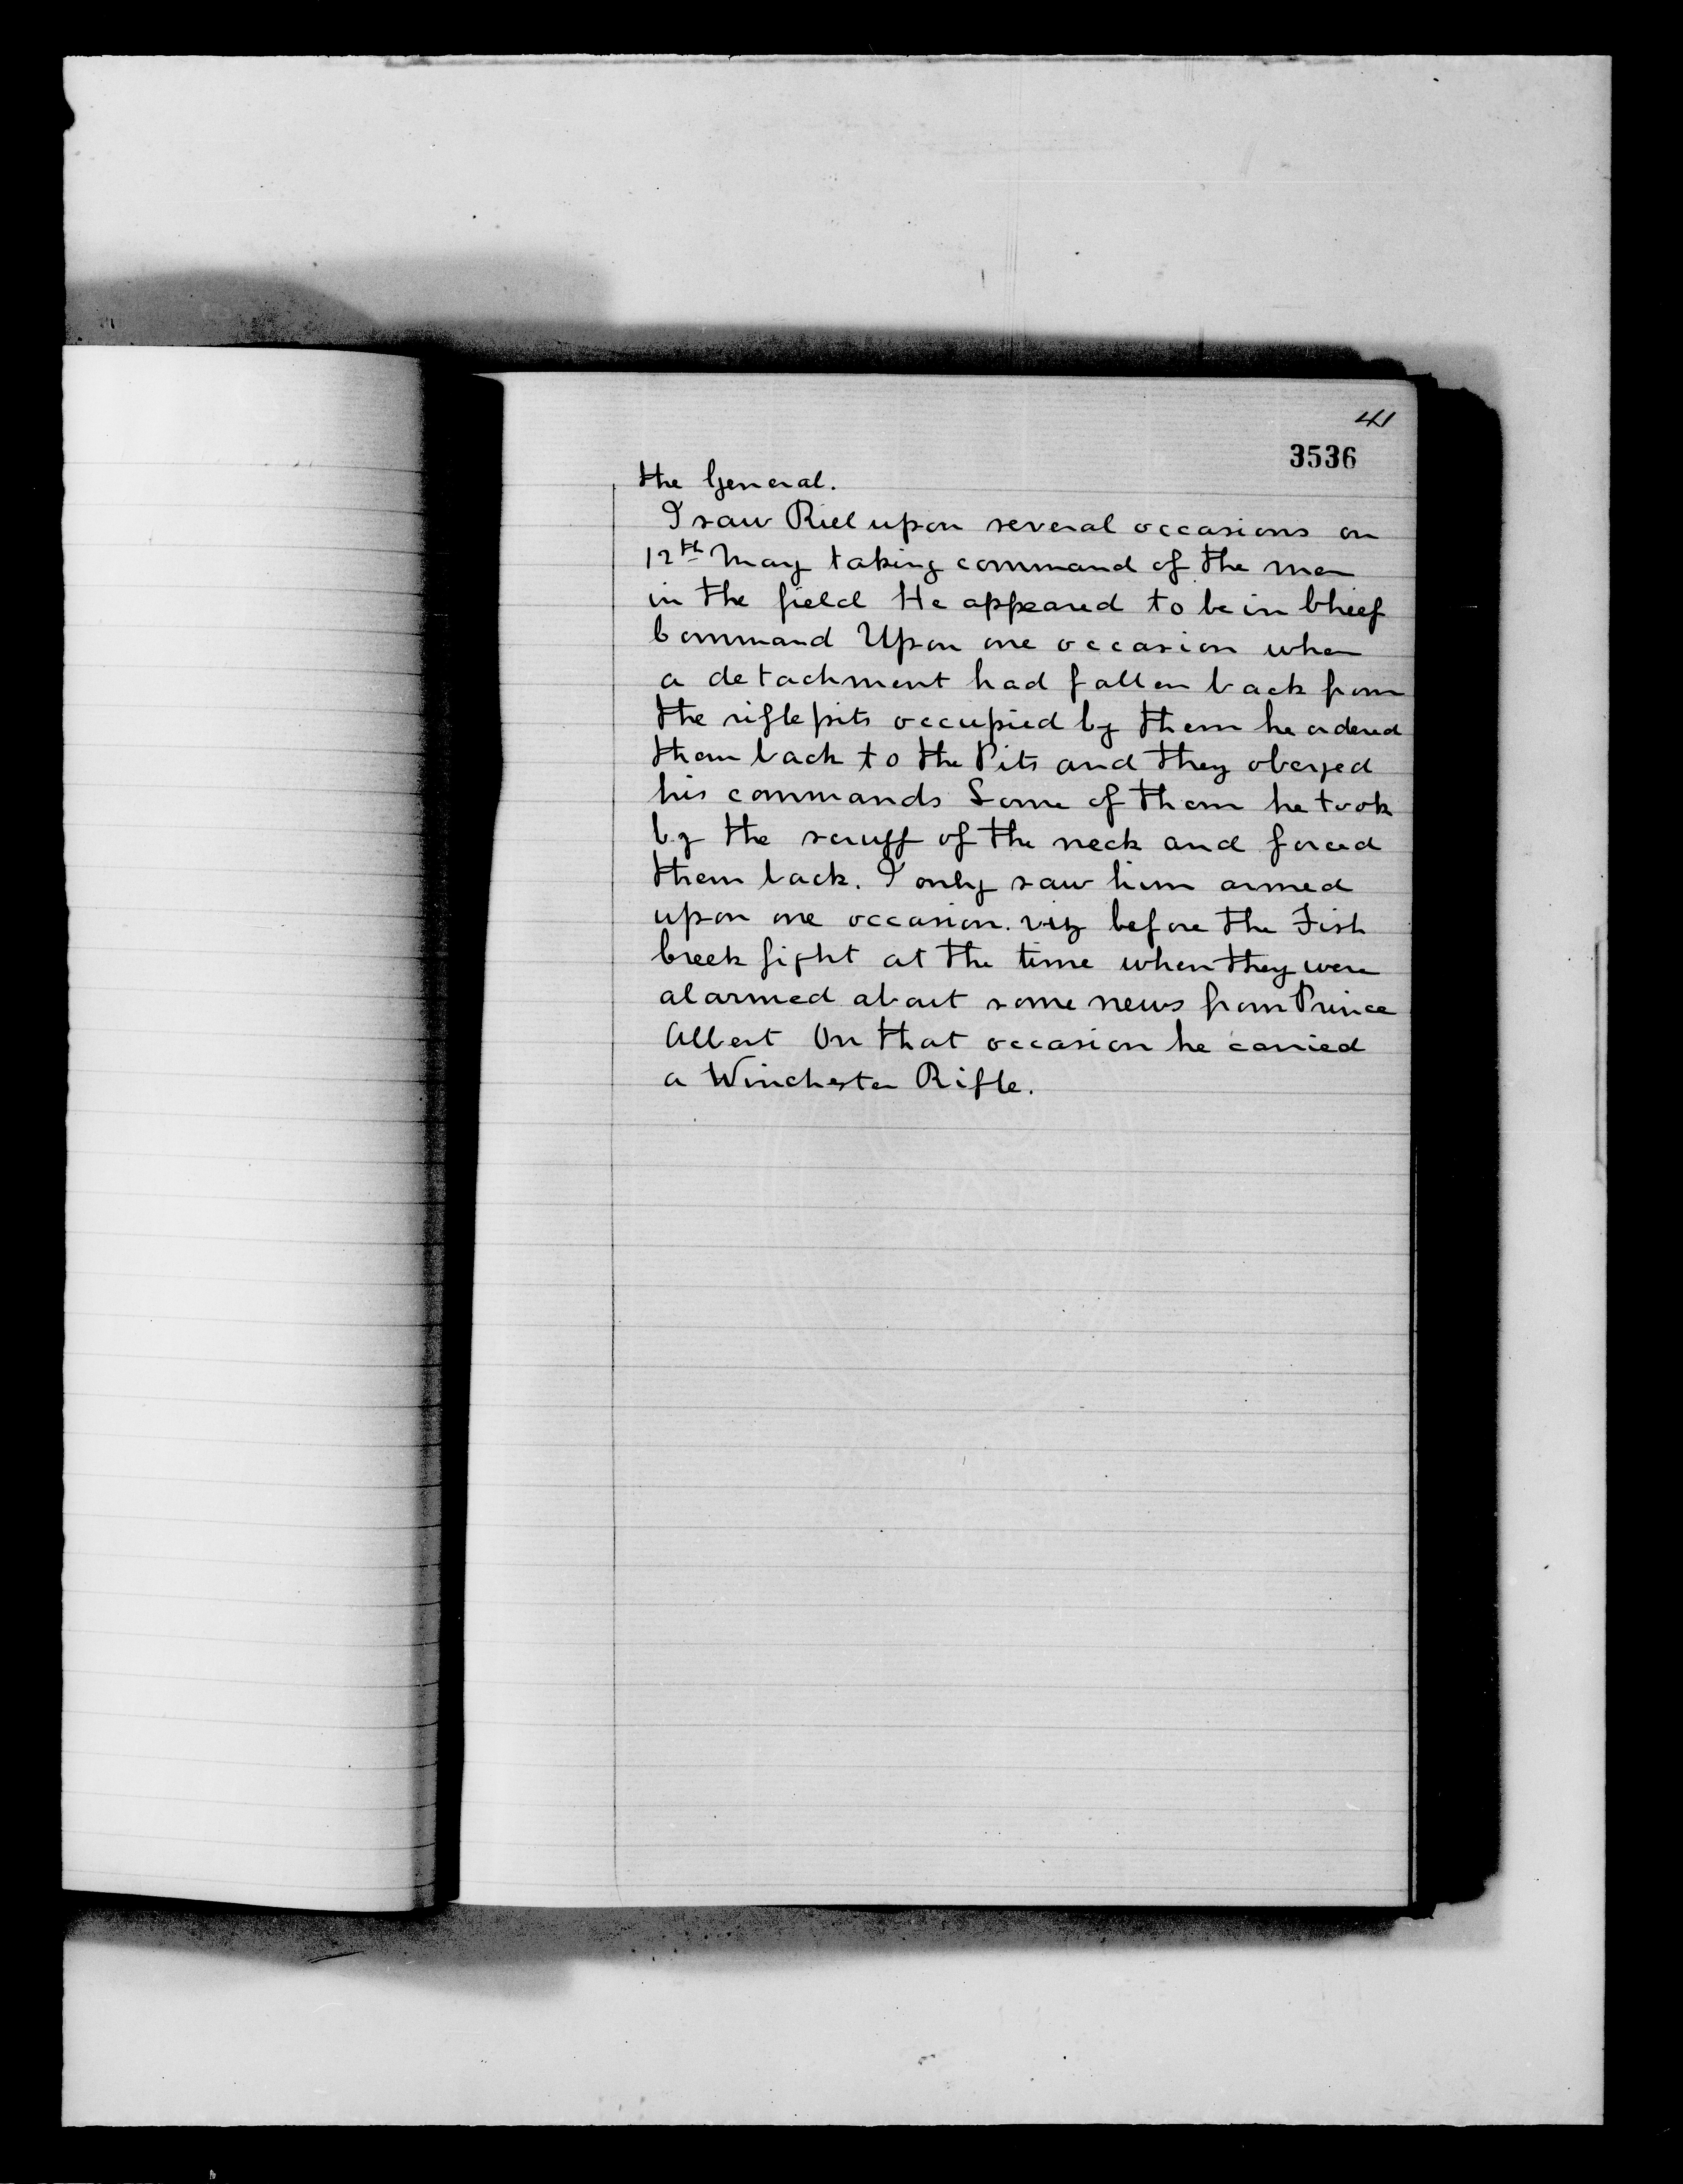 41
3536
the General.
I saw Riel upon several occasions on
12th May taking command of the men
in the field He appeared to be in Chief
Command Upon one occasion when
a detachment had fallen back from
the rifle pits occupied by them he ordered
them back to the Pits and they obeyed
his commands Some of them he took
by the scruff of the neck and forced
them back. I only saw him armed
upon one occasion. viz before the Fish
Creek fight at the time when they were
alarmed about some news from Prince
Albert On that occasion he carried
a Winchester Rifle.